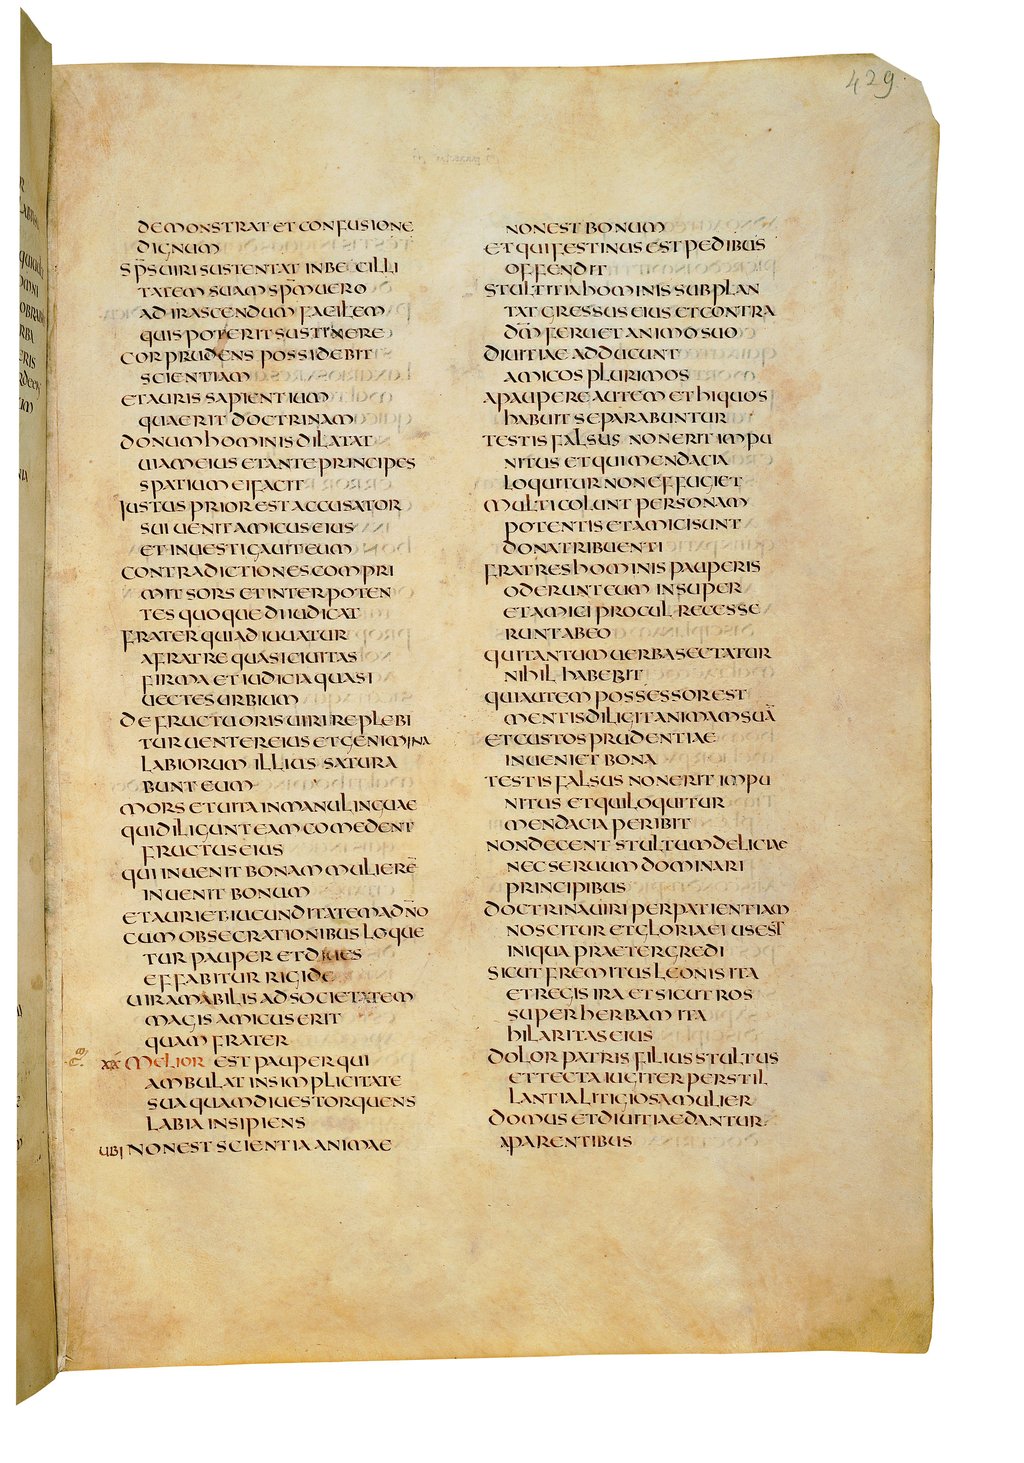 429
DEMONSTRAT ET CONFUSIONE
DIGNUM
SP̄S UIRI SUSTENTAT INBECCILLI
TATEM SUAM SPM̄ UERO
AD IRASCENDUM FACILEM
QUIS POTERIT SUSTINERE
COR PRUDENS POSSIDEBIT
SCIENTIAM
ET AURIS SAPIENTIUM
QUAERIT DOCTRINAM
DONUM HOMINIS DILATAT
UIAM EIUS ET ANTE PRINCIPES
SPATIUM EI FACIT
IUSTUS PRIOR EST ACCUSATOR
SUI UENIT AMICUS EIUS
ET INUESTIGAUIT EUM
CONTRADICTIONES COMPRI
MIT SORS ET INTER POTEN
TES QUOQUE DIIUDICAT
FRATER QUI ADIUUATUR
A FRATRE QUASI CIUITAS
FIRMA ET IUDICIA QUASI
UECTES URBIUM
DE FRUCTU ORIS UIRI REPLEBI
TUR UENTER EIUS ET GENIMINA
LABIORUM ILLIUS SATURA
BUNT EUM
MORS ET UITA IN MANU LINGUAE
QUI DILIGUNT EAM COMEDENT
FRUCTUS EIUS
QUI INUENIT BONAM MULIERĒ
INUENIT BONUM
ET AURIET IUCUNDITATEM A DN̄O
CUM OBSECRATIONIBUS LOQUE
TUR PAUPER ET DIUES
EFFABITUR RIGIDE
UIR AMABILIS AD SOCIETATEM
MAGIS AMICUS ERIT
QUAM FRATER
XX MELIOR EST PAUPER QUI
AMBULAT IN SIMPLICITATE
SUA QUAM DIUES TORQUENS
LABIA INSIPIENS
UBI NON EST SCIENTIA ANIMAE
NON EST BONUM
ET QUI FESTINUS EST PEDIBUS
OFFENDIT
STULTITIA HOMINIS SUBPLAN
TAT GRESSUS EIUS ET CONTRA
DM̄ FERUET ANIMO SUO
DIUITIAE ADDUCUNT
AMICOS PLURIMOS
A PAUPERE AUTEM ET HI QUOS
HABUIT SEPARABUNTUR
TESTIS FALSUS NON ERIT IMPU
NITUS ET QUI MENDACIA
LOQUITUR NON EFFUGIET
MULTI COLUNT PERSONAM
POTENTIS ET AMICI SUNT
DONA TRIBUENTI
FRATRES HOMINIS PAUPERIS
ODERUNT EUM INSUPER
ET AMICI PROCUL RECESSE
RUNT AB EO
QUI TANTUM UERBA SECTATUR
NIHIL HABEBIT
QUI AUTEM POSSESSOR EST
MENTIS DILIGIT ANIMAM SUĀ
ET CUSTOS PRUDENTIAE
INUENIET BONA
TESTIS FALSUS NON ERIT IMPU
NITUS ET QUI LOQUITUR
MENDACIA PERIBIT
NON DECENT STULTUM DELICIAE
NEC SERUUM DOMINARI
PRINCIPIBUS
DOCTRINA UIRI PER PATIENTIAM
NOSCITUR ET GLORIA EIUS EST
INIQUA PRAETERGREDI
SICUT FREMITUS LEONIS ITA
ET REGIS IRA ET SICUT ROS
SUPER HERBAM ITA
HILARITAS EIUS
DOLOR PATRIS FILIUS STULTUS
ET TECTA IUGITER PERSTIL
LANTIA LITIGIOSA MULIER
DOMUS ET DIUITIAE DANTUR
A PARENTIBUS